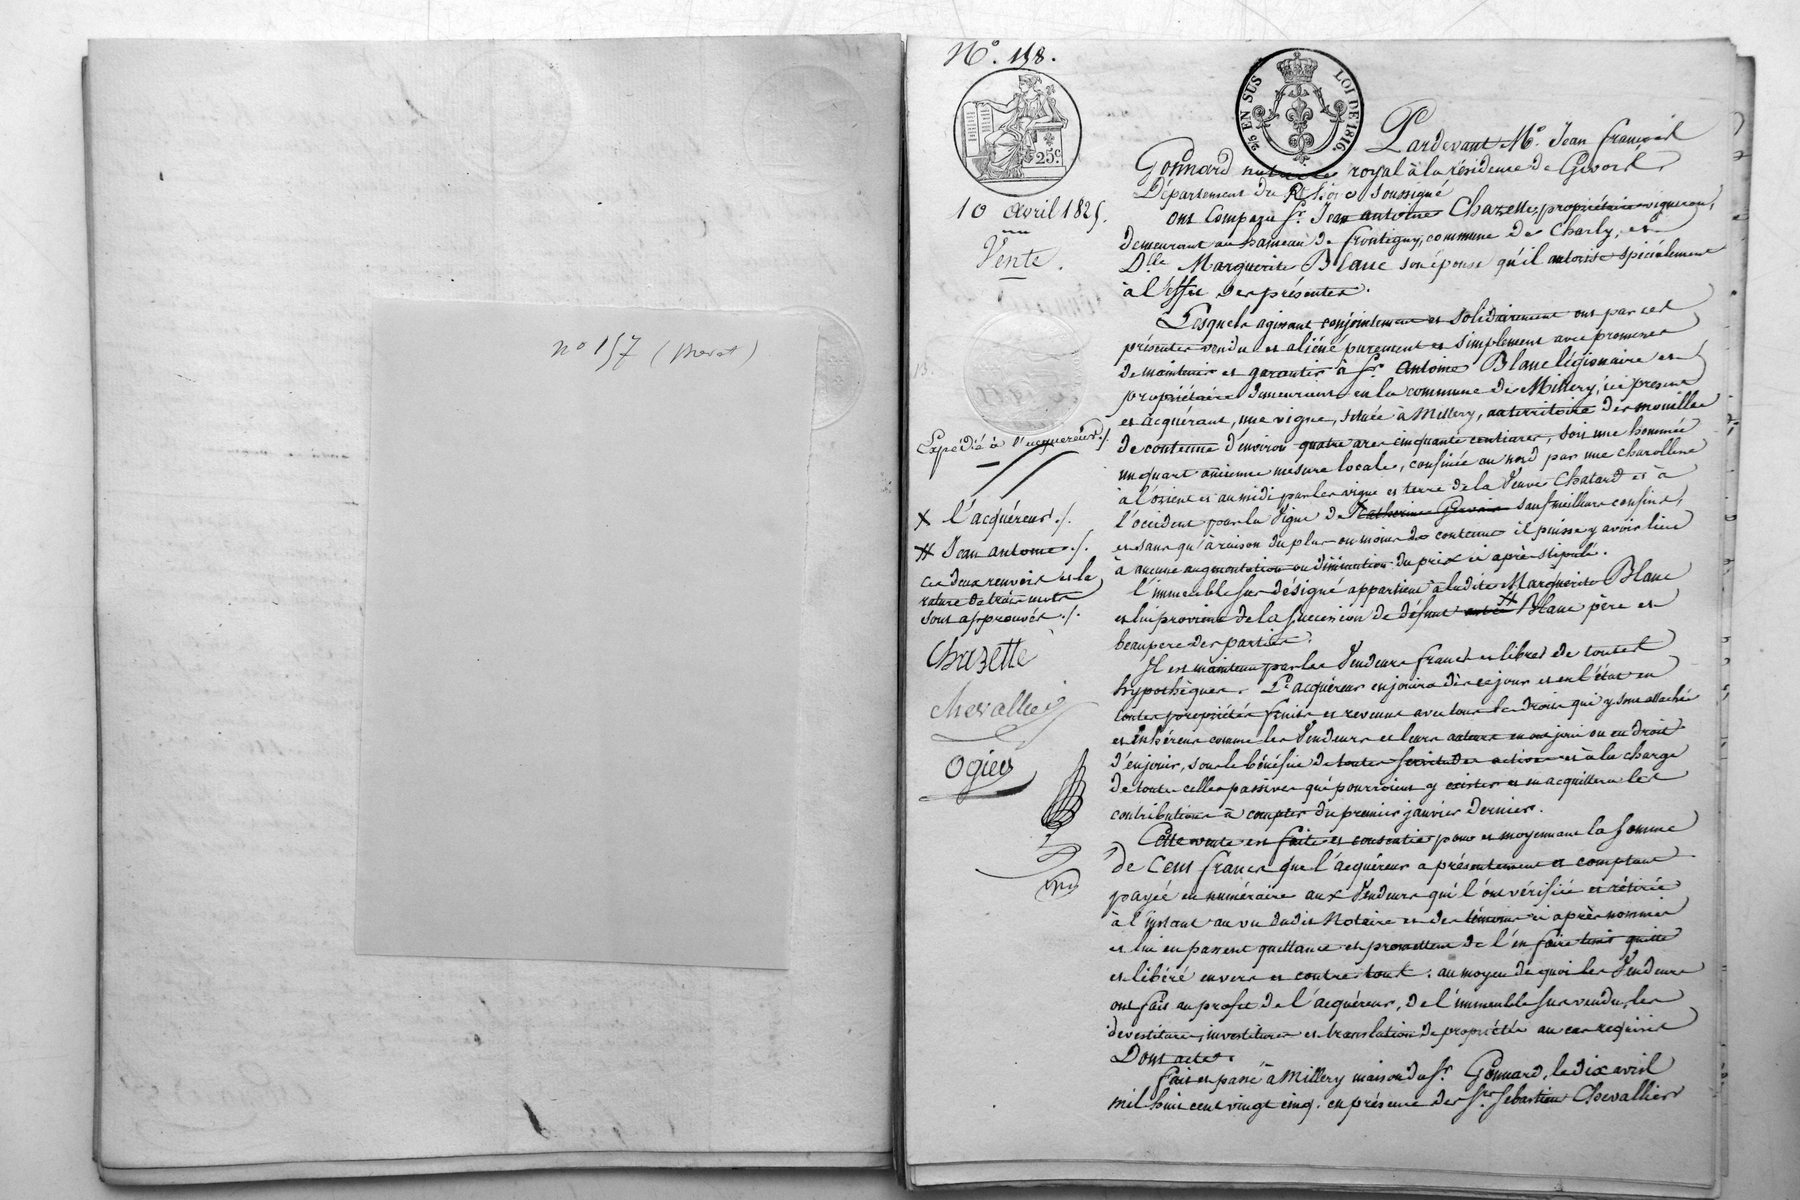 n° 157 (Brevet)
N°. 158.
25 c.
2/5 EN SUS LOI DE 1816.
10 avril 1825.
Vente.
Expédié à l'acquéreur ./.
X l'acquéreur ./.
# Jean antoine ./.
Ces deux renvois et la
rature de trois mots
sont approuvés ./.
Chazette
Chevallier
Ogier
Pardevant Me. Jean françois
Gonnard notaire royal à la résidence de Givors,
Département du Rhône soussigné
ont Comparu Sr. Jean antoine Chazette, propriétaire vigneron,
demeurant au hameau de frontigny, commune de Charly, et
Dlle Marguerite Blanc son épouse qu'il autorise spécialement
à l'effet des présentes.
Lesquels agissant conjointement et Solidairement ont par ces
présentes vendu et aliéné purement et simplement avec promesse
de maintenir et garantir à Sr. Antoine Blanc légionaire et
propriétaire demeurant en la commune de Millery, ici présent
et acquérant, une vigne, située à Millery, au territoire des mouilles
de contenue d'environ quatre ares cinquante centiares, soit une hommée
un quart ancienne mesure locale, confinée au nord par une charolliere
à l'orient et au midi par les vigne et terre de la Veuve Chatard et à
l'occident par la Vigne de X Catherine Gervais sauf meilleurs confins,
et sans qu'à raison du plus ou moins de contenue il puisse y avoir lieu
à aucune augmentation ou diminution du prix ci après stipulé.
l'immeuble sus désigné appartient à ladite Marguerite Blanc
et lui provient de la succession de défunt # Blanc père et
beaupere des parties.
Il est maintenu par les Vendeurs francs et libres de toutes
hypothèques. L'acquéreur en jouira dès ce jour et en l'état en
toutes propriétés fruits et revenus avec tous les droits qui y sont attachés
et Inhérens comme les Vendeurs et leurs auteurs en ont joui ou eu droit
d'en jouir, sous le bénéfice de toutes Servitudes actives et à la charge
de toutes celles passives qui pourroient y exister et en acquittera les
contributions à compter du premier janvier dernier.
Cette vente est faite et consentie pour et moyennant la Somme
de Cent francs que l'acquéreur a présentement et comptant
payée en numéraire aux Vendeurs qui l'ont vérifiée et retirée
à l'instant au vu dudit Notaire et des témoins ci après nommés
et lui en passent quittance et promettent de l'en faire tenir quitte
et libéré envers et contre tous : au moyen de quoi les Vendeurs
ont fait au profit de l'acquéreur, de l'immeuble sus vendu, les
devestiture, investitures et translation de propriété au cas requises
Dont acte.
fait et passé à Millery maison du Sr. Gonnard, le dix avril
mil huit cent vingt cinq. en présence des Srs Sébastien Chevallier